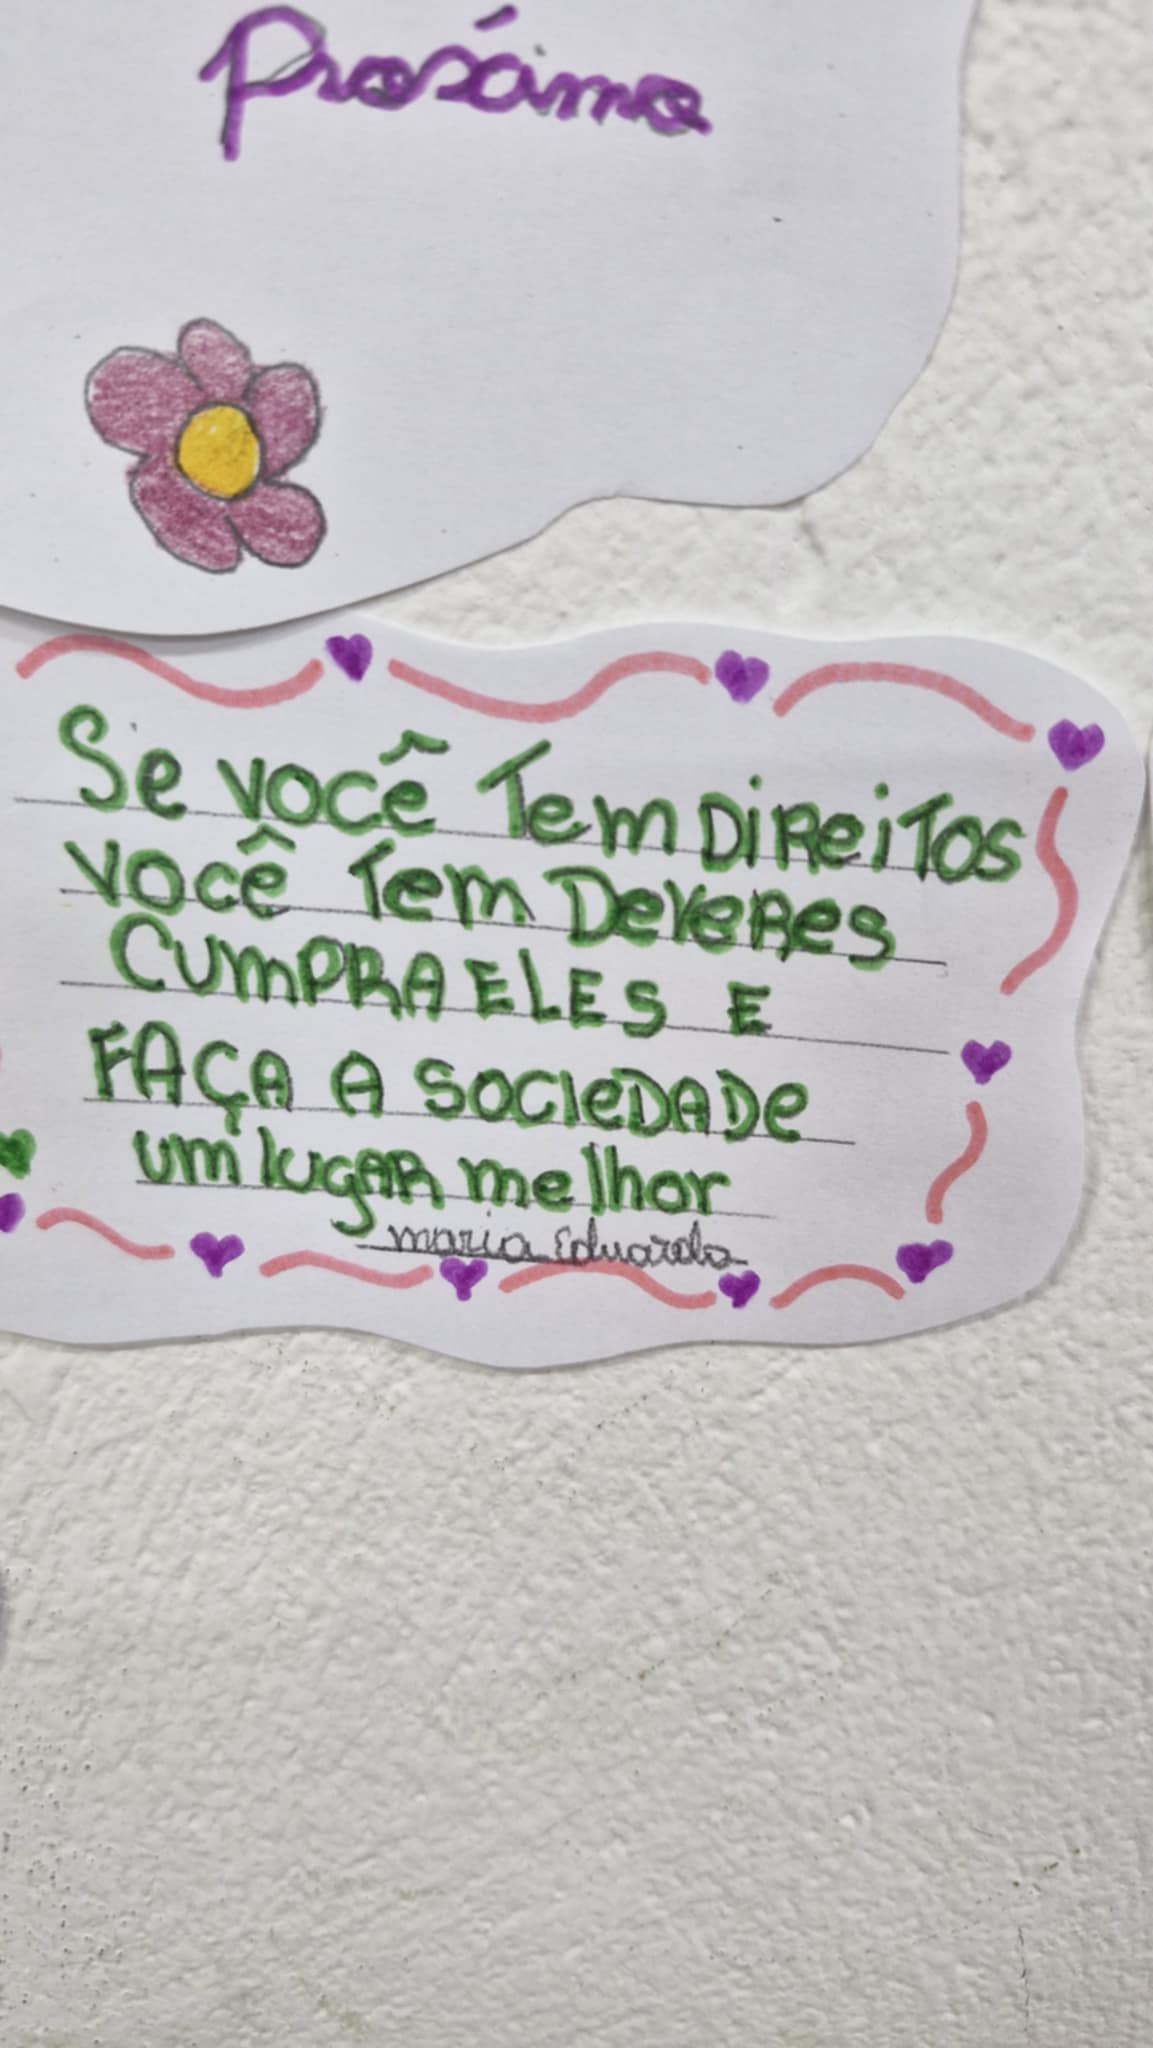 Prosámo
Se você Tem DiReiTos
você Tem DeveRes
CUMPRA ELES E
FAÇA A SocIeDADe
um lugAR melhor
maria Eduarda